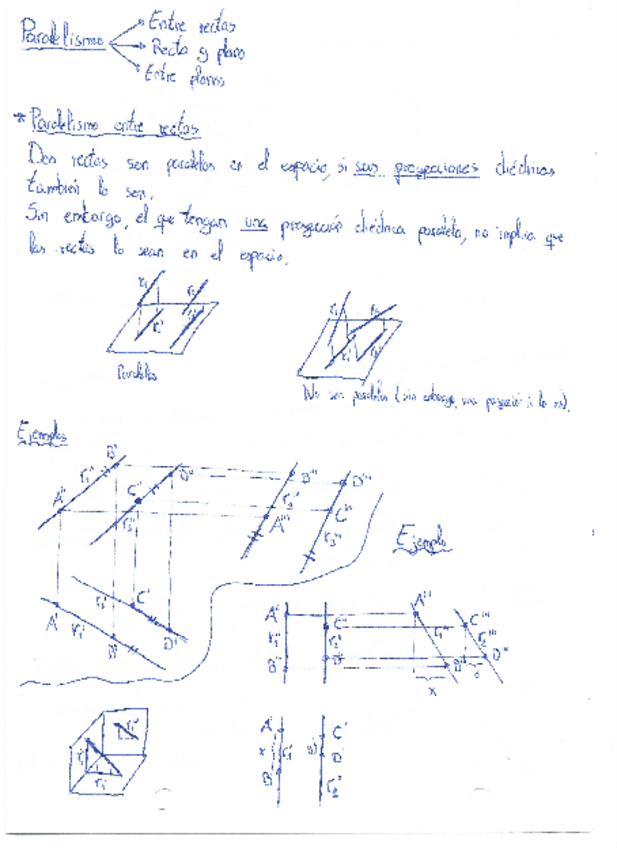 Paralelismo
Entre rectas
Recta y plano
Entre planos
* Paralelismo entre rectas
Dos rectas son paralelas en el espacio, si sus proyecciones diédricas
también lo son.
Sin embargo, el que tengan una proyección diédrica paralela, no implica que
las rectas lo sean en el espacio.
r1 r2
r1' r2'
Paralelas
r1 r2
r1' r2'
No son paralelas (sin embargo, una proyección si lo es).
Ejemplo
B'' D'' B''' D'''
r1'' C''
A'' A''' C'''
Ejemplo
C'
A' r1' B' D'
A'' C'' A''' C'''
r1'' r2'' r1''' r2'''
B'' D'' B''' D'''
x
A' C'
x r1' D'
B'